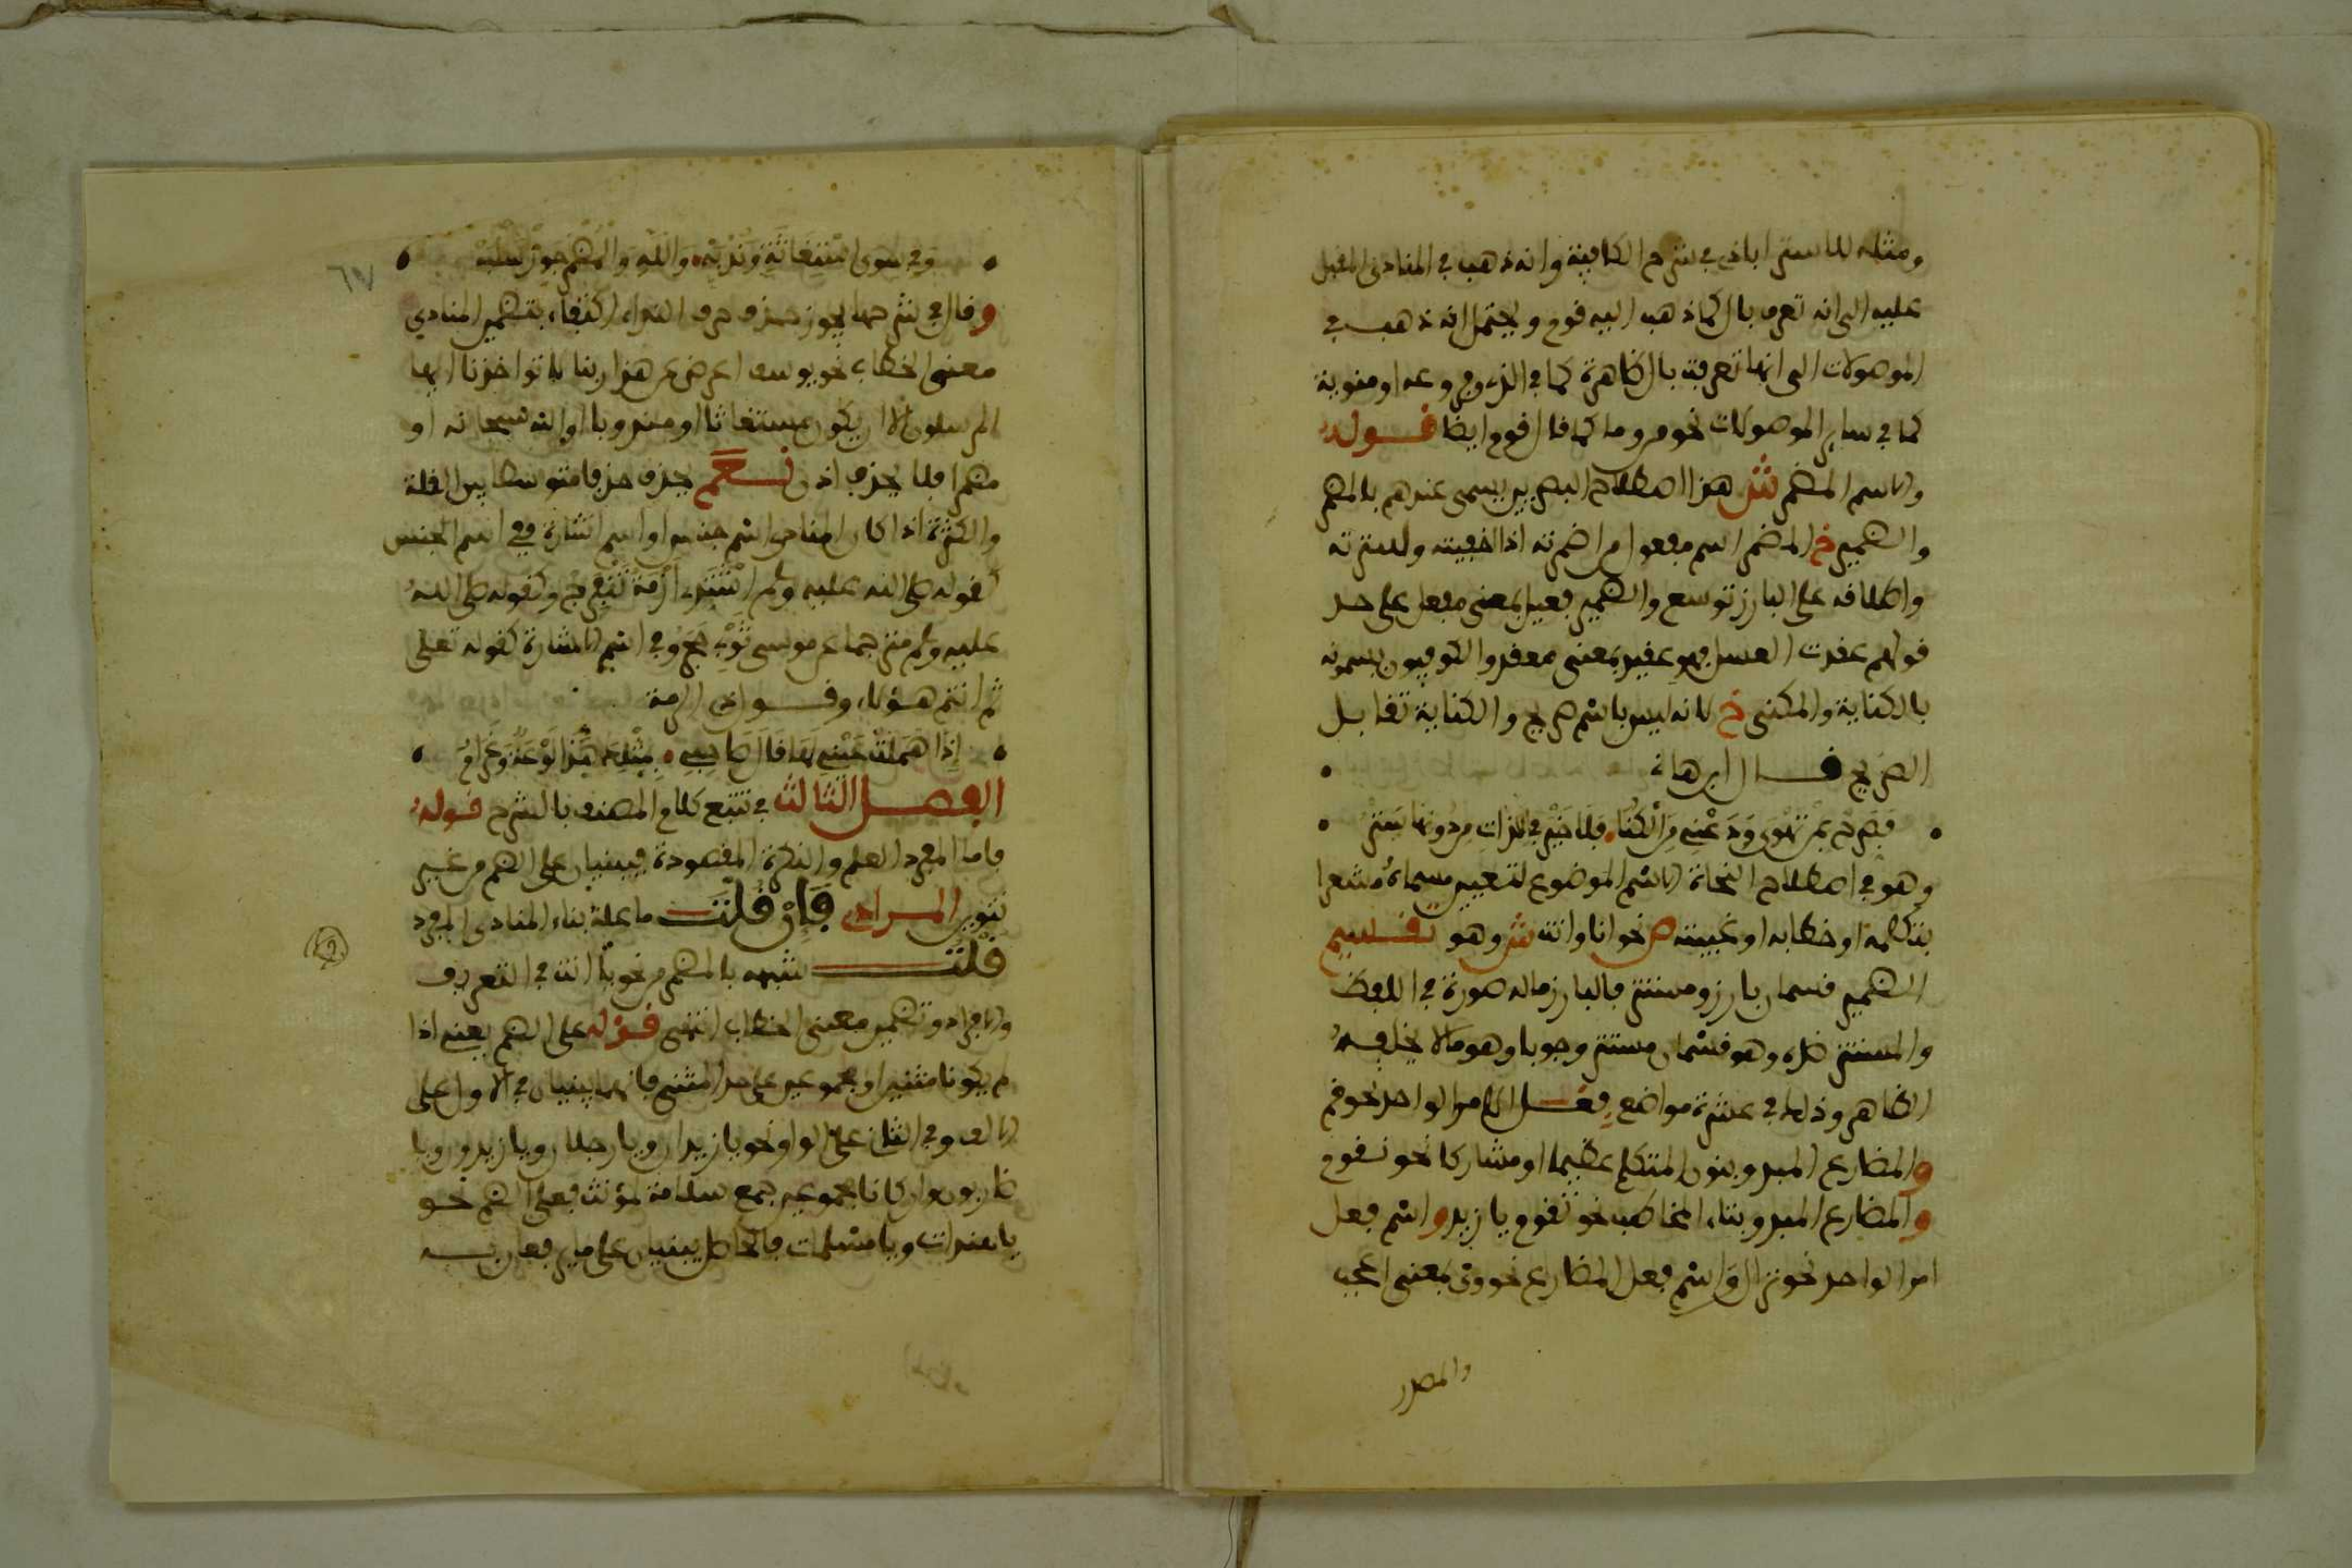 ومثله للاستراباذي في شرح الكافية وانه ذهب في المنادى المقبل
عليه الى انه تعرف بال كما ذهب اليه قوم ويحتمل انه ذهب في
الموصولات الى انها تعرفت بال ظاهرة كما في الذي وفروعه او منوية
كما في ساير الموصولات نحو من وما كما قال قوم ايضا قوله
والاسم المضمر ش هذا اصطلاح البصريين يسمى عندهم بالمضمر
والضمير خ المضمر اسم مفعول من اضمرته اذا اخفيته وسترته
واطلاقه على البارز توسع والضمير فعيل بمعنى مفعل على حد
قولهم عقدت العسل فهو عقيد بمعنى معقد والكوفيون يسمونه
بالكناية والمكنى خ لانه ليس باسم صريح والكناية تقابل
الصريح قال ابن هانئ
فصرح بمن تهوى ودعني من الكنا فلا خير في اللذات من دونها ستر
وهو في اصطلاح النحاة الاسم الموضوع لتعيين مسماه مشعرا
بتكلمه او خطابه او غيبته ص نحو انا وانت ش وهو تقسيم
الضمير قسمان بارز ومستتر فالبارز ماله صورة في اللفظ
والمستتر ضده وهو قسمان مستتر وجوبا وهو مالا يخلفه
الظاهر وذلك في عشرة مواضع فعل الامر الواحد نحو قم
والمضارع المبدو بنون المتكلم عظيما او مشاركا نحو نقوم
والمضارع المبدو بتاء المخاطب نحو تقوم يا زيد واسم فعل
امر الواحد نحو نزال واسم فعل المضارع نحو وي بمعنى اعجب
والمصدر
وفي سوى استغاثة وندبة والله والمضمر جوز سلبه
وقال في شرحها يجوز حذف حرف النداء اكتفاء بتضمير المنادي
معنى الخطاب نحو يوسف اعرض عن هذا ربنا لا تواخذنا ايها
المرسلون الا ان يكون مستغاثا او مندوبا او الله سبحانه او
مضمرا فلا يحذف اذن نعم يحذف حذفا متوسطا بين القلة
والكثرة اذا كان المنادى اسم جنس او اسم اشارة ففي اسم الجنس
كقوله صلى الله عليه وسلم اشتدي ازمة تنفرجي وكقوله صلى الله
عليه وسلم مترجما عن موسى ثوبي حجر وفي اسم الاشارة كقوله تعلى
ثم انتم هؤلاء وقول ذي الرمة
اذا هملت عيني لها قال صاحبي بمثلك هذا لوعة وغرام
الفصل الثالث في تتبع كلام المصنف بالشرح قوله
فاما المفرد العلم والنكرة المقصودة فيبنيان على الضم من غير
تنوين المرادي فإن قلت ما علة بناء المنادى المفرد
قلت شبهه بالمضمر من نحو يا انت في التعريف
والافراد وتضمين معنى الخطاب انتهى قوله على الضم يعني اذا
لم يكونا مثنيين او مجموعين على حد المثنى فانهما يبنيان في الاول على
الالف وفي الثاني على الواو نحو يا زيدان ويا رجلان ويا زيدون ويا
ضاربون وان كانا مجموعين جمع سلامة لمؤنث فعلى الضم نحو
يا هندات ويا مسلمات فالحاصل يبنيان على ما يرفعان به